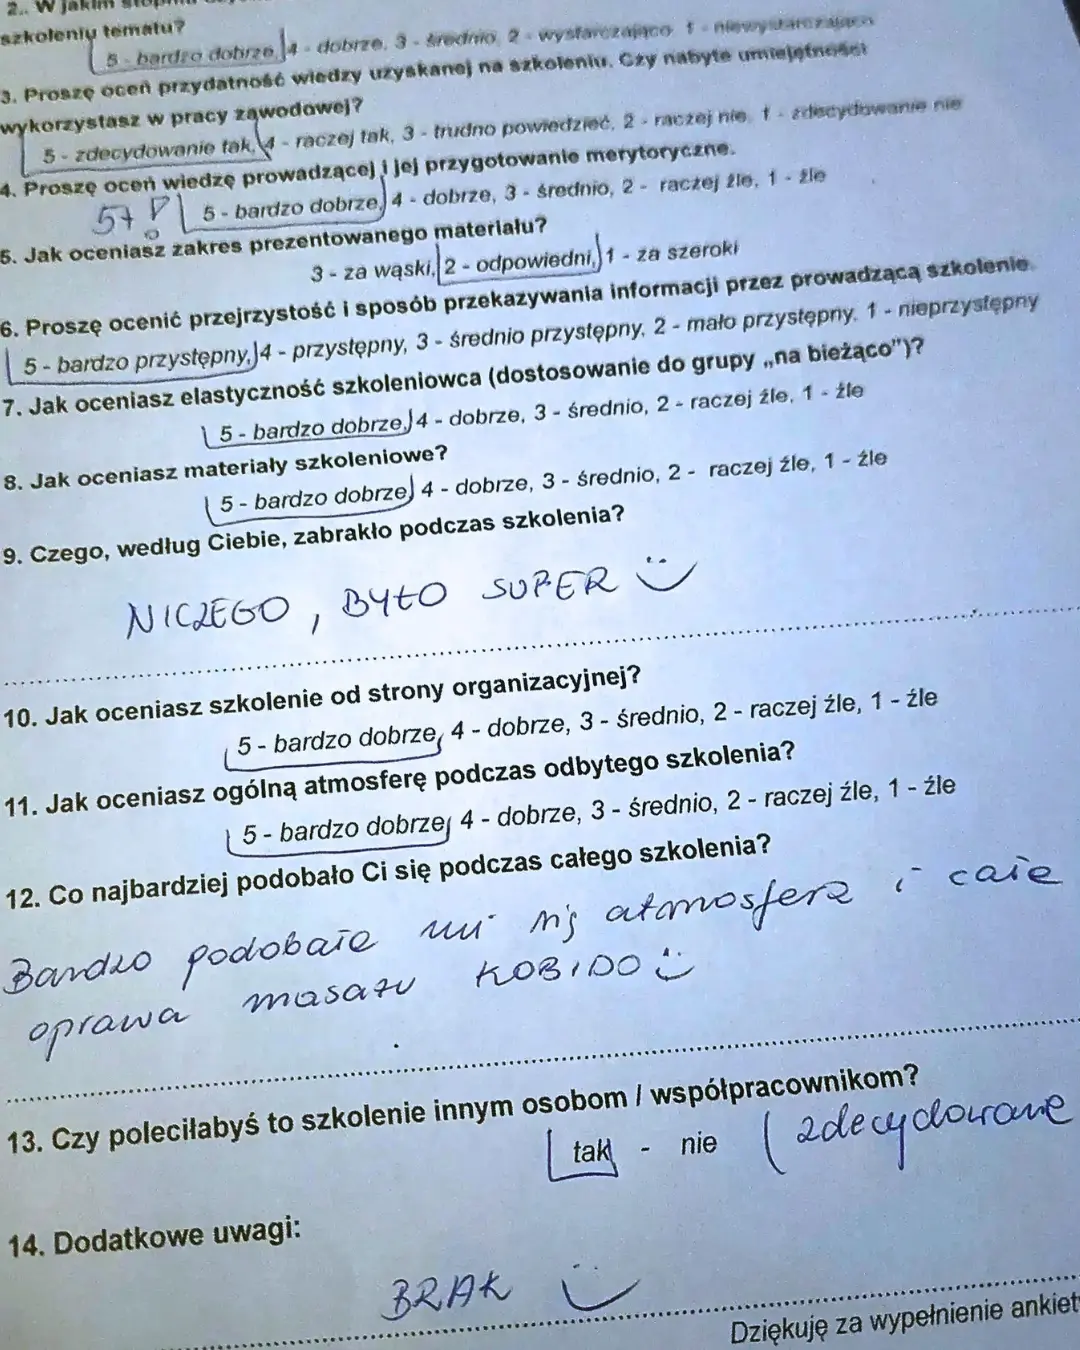 2.. W jakim stopniu
szkoleniu tematu?
5 - bardzo dobrze, 4 - dobrze, 3 - średnio, 2 - wystarczająco, 1 - niewystarczająco
3. Proszę oceń przydatność wiedzy uzyskanej na szkoleniu. Czy nabyte umiejętności
wykorzystasz w pracy zawodowej?
5 - zdecydowanie tak, 4 - raczej tak, 3 - trudno powiedzieć, 2 - raczej nie, 1 - zdecydowanie nie
4. Proszę oceń wiedzę prowadzącej i jej przygotowanie merytoryczne.
5+ ! 5 - bardzo dobrze, 4 - dobrze, 3 - średnio, 2 - raczej źle, 1 - źle
5. Jak oceniasz zakres prezentowanego materiału?
3 - za wąski, 2 - odpowiedni, 1 - za szeroki
6. Proszę ocenić przejrzystość i sposób przekazywania informacji przez prowadzącą szkolenie.
5 - bardzo przystępny, 4 - przystępny, 3 - średnio przystępny, 2 - mało przystępny, 1 - nieprzystępny
7. Jak oceniasz elastyczność szkoleniowca (dostosowanie do grupy „na bieżąco")?
5 - bardzo dobrze, 4 - dobrze, 3 - średnio, 2 - raczej źle, 1 - źle
8. Jak oceniasz materiały szkoleniowe?
5 - bardzo dobrze, 4 - dobrze, 3 - średnio, 2 - raczej źle, 1 - źle
9. Czego, według Ciebie, zabrakło podczas szkolenia?
NICZEGO, BYŁO SUPER
10. Jak oceniasz szkolenie od strony organizacyjnej?
5 - bardzo dobrze, 4 - dobrze, 3 - średnio, 2 - raczej źle, 1 - źle
11. Jak oceniasz ogólną atmosferę podczas odbytego szkolenia?
5 - bardzo dobrze, 4 - dobrze, 3 - średnio, 2 - raczej źle, 1 - źle
12. Co najbardziej podobało Ci się podczas całego szkolenia?
Bardzo podobała mi się atmosfera i cała
oprawa masażu KOBIDO
13. Czy poleciłabyś to szkolenie innym osobom / współpracownikom?
tak - nie ( zdecydowanie
14. Dodatkowe uwagi:
BRAK
Dziękuję za wypełnienie ankiety